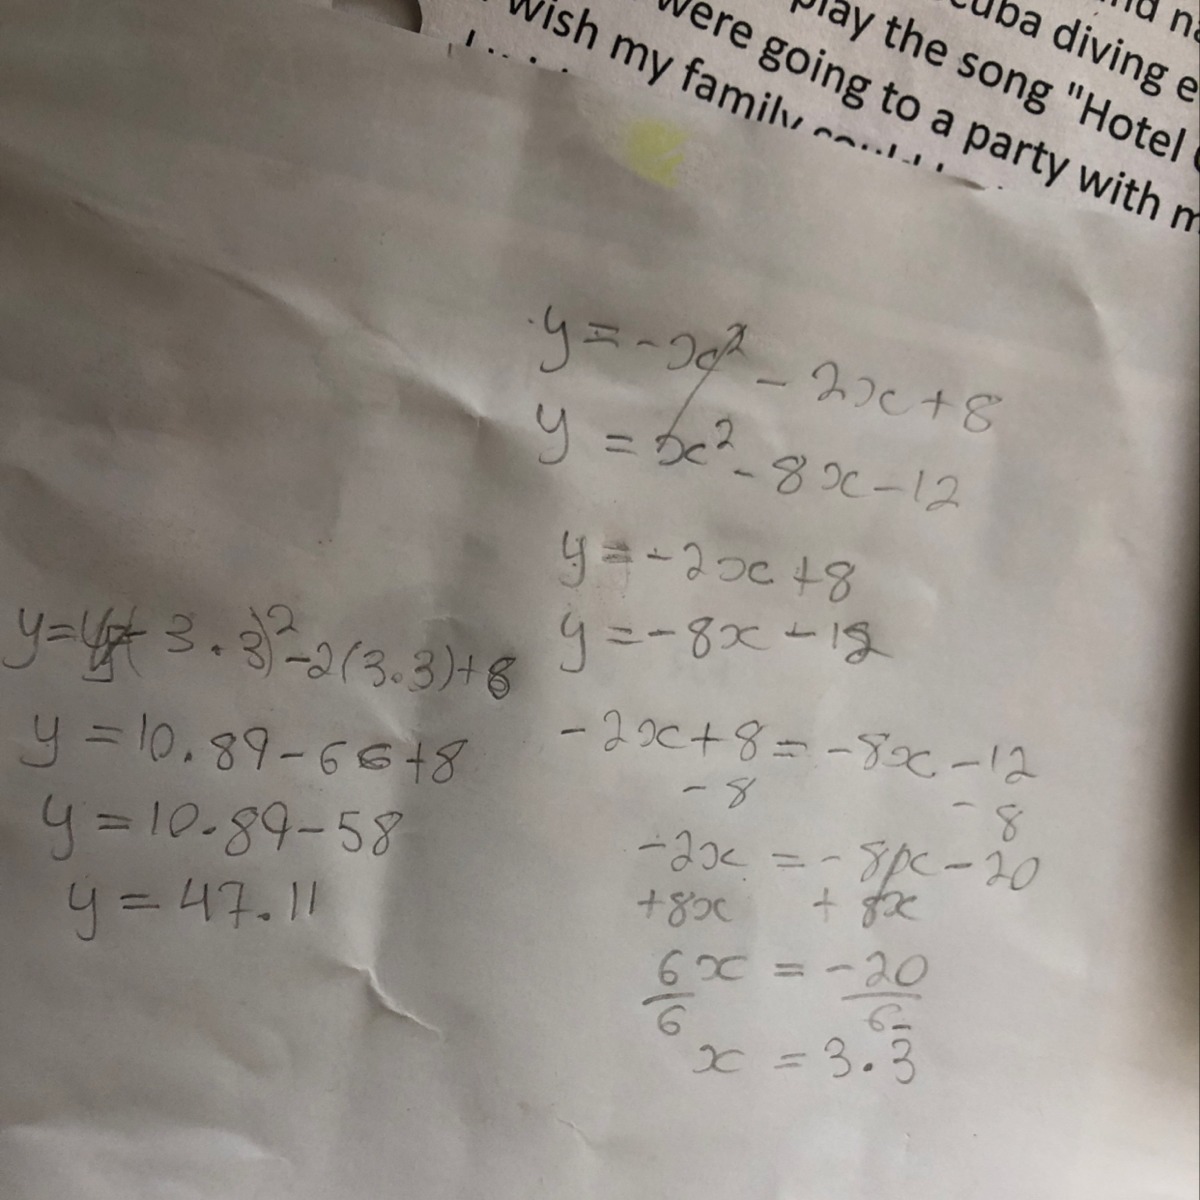 cuba diving e
play the song "Hotel
were going to a party with m
wish my family
y = -x² - 2x + 8
y = x² - 8x - 12
y = -2x + 8
y = -8x - 12
-2x + 8 = -8x - 12
- 8 - 8
-2x = -8x - 20
+8x + 8x
6x = -20
6 6
x = 3.3
3.3)² - 2(3.3) + 8
y = 10.89 - 66 + 8
y = 10.89 - 58
y = 47.11